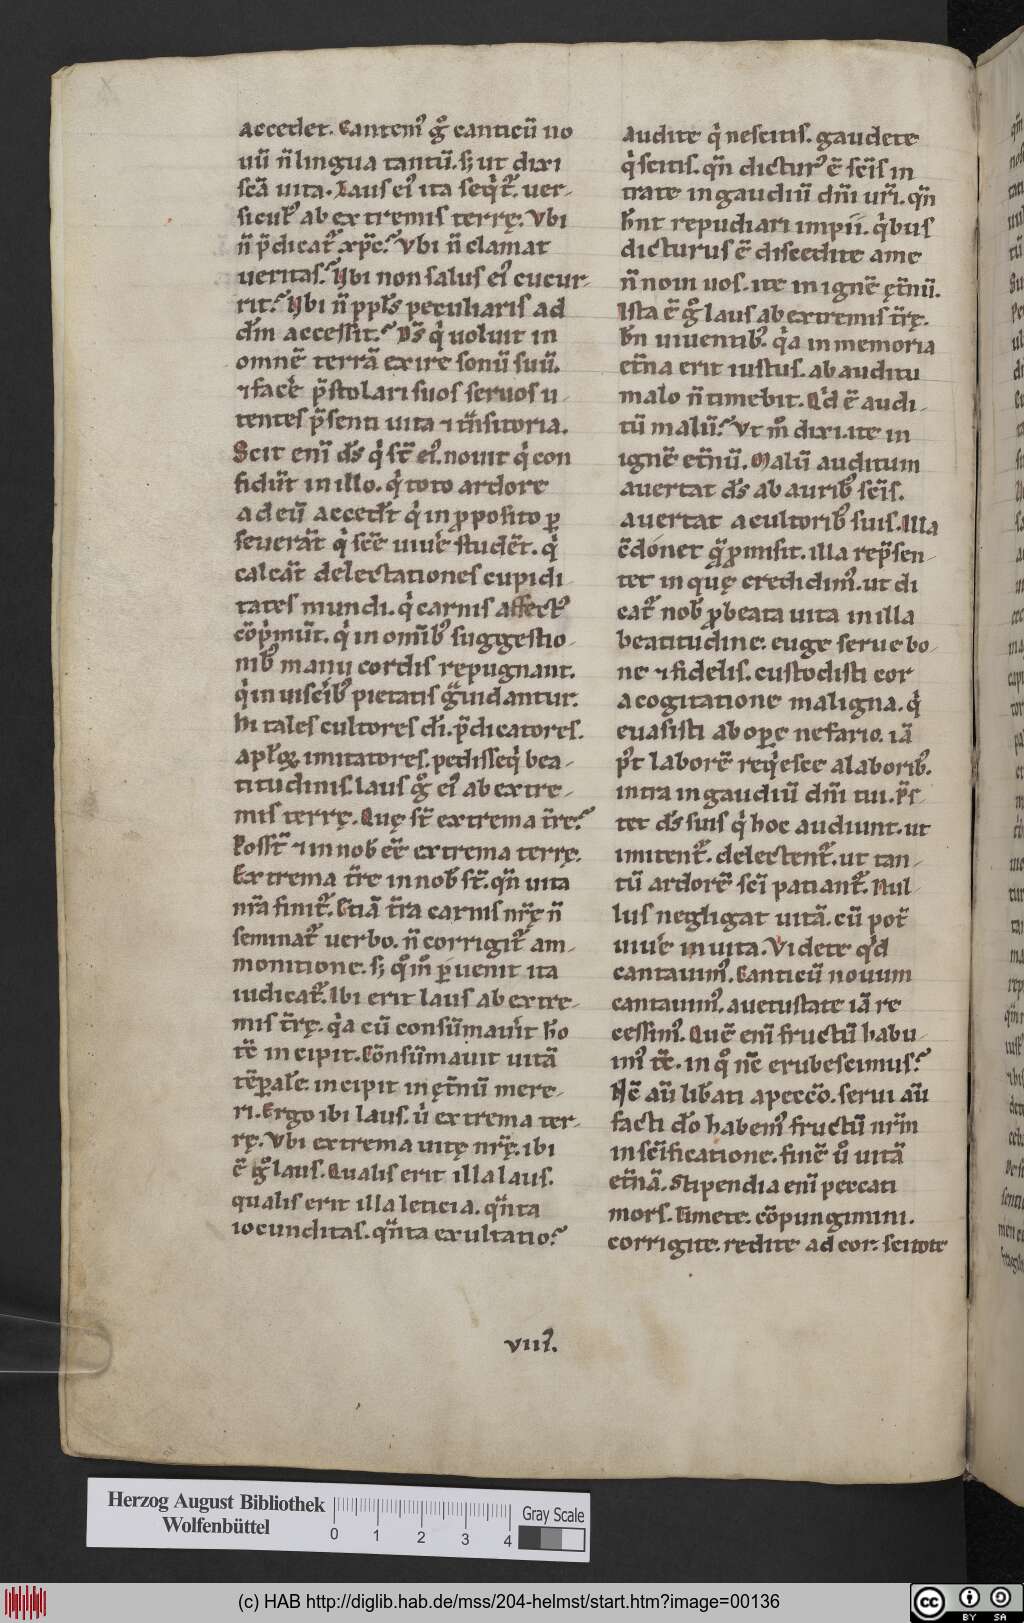 accedet. Cantem᷒ g̊ canticū no
uū n̄ lingua tantū. s; ut dixi
sc̄a uita. Laus ei᷒ ita seq̇t᷑. uer-
siculꝰ ab extremis terrę. Vbi
n̄ p̄dicat᷑ xp̄c? Vbi n̄ clamat
ueritas? Vbi non salus ei᷒ cucur-
rit? Vbi n̄ ppl̄s peculiaris ad
dn̄m accessit? Ds̄ q̇ uoluit in
omnē terrā exire sonū suū.
⁊ facē p̄stolari suos seruos u-
tentes p̄senti uita ⁊ tn̄sitoria.
Scit eni ds̄ q̇ st̄ ei᷒. nouit q̇ con
fidūt in illo. q̇ toto ardore
ad eū accedt̄ q̇ in ꝓposito ꝑ
seuerāt q̇ sc̄e uiuē studēt. q̇
calcāt delectationes cupidi-
tates mundi. q̇ carnis affect᷒
cōṗmūt. q̇ in omīb᷒ suggestio-
nib᷒ manu cordis repugnant.
q̇ in uiscīb᷒ pietatis gͣuidantur.
hi tales cultores dī. p̄dicatores.
apl̄oꝝ imitatores. pedisseq̇ bea-
titudinis. laus g̊ ei᷒ ab extre-
mis terrę. Quę st̄ extrema tr̄e?
Posst̄ ⁊ in nob̄ eē extrema terrę.
Extrema tr̄e in nob̄ st̄. qn̄ uita
nr̄a finit᷑. Etiā tr̄a carnis nr̄ę n̄
seminat᷑ uerbo. n̄ corrigit᷑ am-
monitione. s; q̊m̊ ꝑuenit ita
iudicat᷑. Ibi erit laus ab extre-
mis tr̄ę. q̇a cū consūmauit ho
tē incipit. Cōnsūmauit uitā
tēporalē. incipit in ęt̄nū mere-
ri. Ergo ibi laus. u̇ extrema ter-
rę. Vbi extrema uitę nr̄ę. ibi
ē g̊ laus. Qualis erit illa laus.
qualis erit illa leticia. qn̄ta
iocunditas. qn̄ta exultatio?
Audite q̇ nescitis. gaudete
q̇ scitis. qn̄ dictur᷒ ē scīs in
trate in gaudiū dn̄i ur̄i. qn̄
hn̄t repudiari impii. q̇bus
dicturus ē discedite a me
n̄ noui uos. ite in ignē ęt̄nū.
Ista ē g̊ laus ab extremis tr̄ę.
bn̄ uiuentib᷒. q̇a in memoria
et̄na erit iustus. ab auditu
malo n̄ timebit. Qd̄ ē audi-
tū malū? Vt m̊ dixi. ite in
ignē et̄nū. Malū auditum
auertat ds̄ ab aurib᷒ scīs.
auertat a cultorib᷒ suis. Illa
ē donet q̄ ꝓmisit. illa rep̄sen-
tet in quę credidim᷒. ut di
cat᷑ nob̄ ꝓ beata uita in illa
beatitudine. euge serue bo-
ne ⁊ fidelis. custodisti cor
a cogitatione maligna. q̇
euasisti ab ope nefario. iā
p᷒t laborē req̇esce a laborib᷒.
intra in gaudiū dn̄i tui. p̄s-
tet ds̄ suis q̇ hoc audiunt. ut
imitent᷑. delectent᷑. ut tan-
tū ardorē scī patiant᷑. Nul-
lus negligat uitā. cū pot̄
uiuē in uita. Videte qd̄
cantauim᷒. Canticū nouum
cantauim᷒. a uetustate iā re
cessim᷒. Quē eni fructū habu-
im᷒ tc̄. in q̊ nc̄ erubescimus?
Nc̄ aū lib̄ati a peccō. serui aū
facti dō. habem᷒ fructū nr̄m
in scīficatione. finē ů uitā
et̄nā. Stipendia eni peccati
mors. timete. cōpungimini.
corrigite. redite ad cor. scitote
viii᷒.
Herzog August Bibliothek
Wolfenbüttel
0 1 2 3 4
Gray Scale
(c) HAB http://diglib.hab.de/mss/204-helmst/start.htm?image=00136
cc BY SA